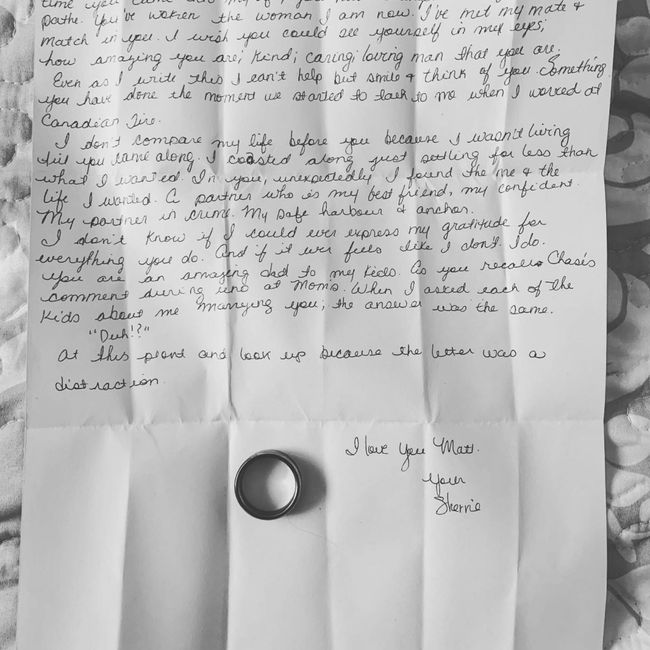 time you came
pathe. You've woken the woman I am now. I've met my mate &
match in you. I wish you could see yourself in my eyes;
how amazing you are; kind; caring; loving man that you are.
Even as I write this I can't help but smile & think of you. Something
you have done the moment we started to talk to me when I worked at
Canadian Tire.
I don't compare my life before you because I wasn't living
till you came along. I coasted along just settling for less than
what I wanted. In you, unexpectedly I found the me & the
life I wanted. A partner who is my best friend, my confident.
My partner in crime. My safe harbour & anchor.
I don't know if I could ever express my gratitude for
everything you do. And if it ever feels like I don't. I do.
You are an amazing dad to my kids. As you recall Chase's
comment during uno at Mom's. When I asked each of the
kids about me marrying you; the answer was the same.
"Duh!?"
At this point and look up because the letter was a
distraction.
I love you Matt.
Your
Sherrie